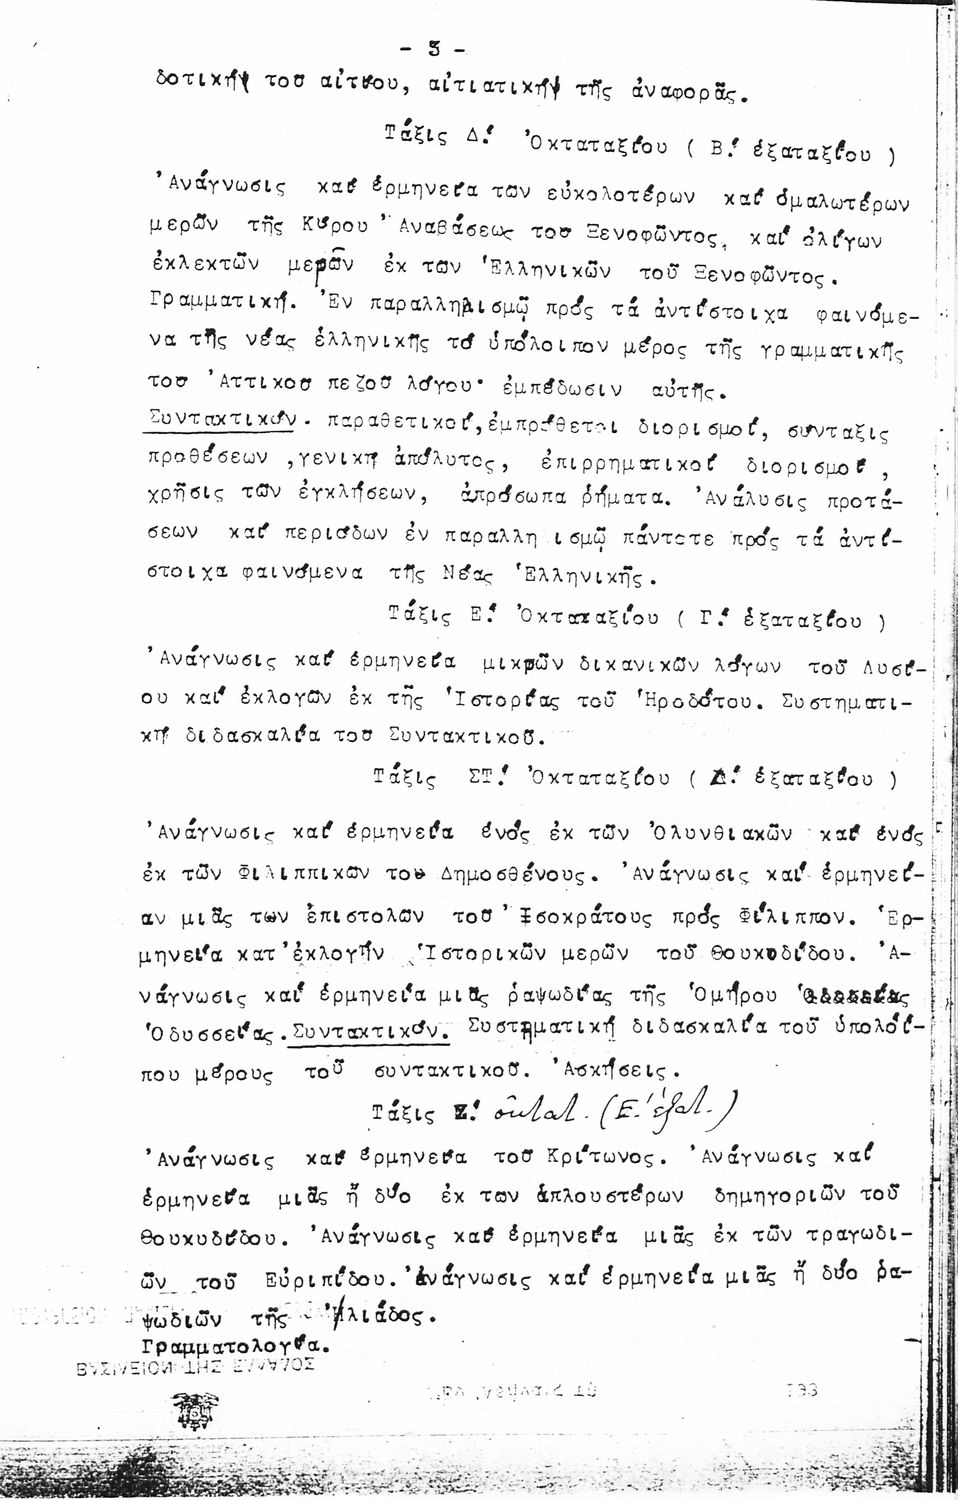 - 3 -
δοτικήν τοῦ αἰτίου, αἰτιατικήν τῆς ἀναφορᾶς.
Τάξις Δ! Ὀκταταξίου ( Β! ἑξαταξίου )
Ἀνάγνωσις καί ἑρμηνεία τῶν εὐκολοτέρων καί ὁμαλωτέρων
μερῶν τῆς Κύρου Ἀναβάσεως τοῦ Ξενοφῶντος, καί ὀλίγων
ἐκλεκτῶν μερῶν ἐκ τῶν Ἑλληνικῶν τοῦ Ξενοφῶντος.
Γραμματική. Ἐν παραλληλισμῷ πρός τά ἀντίστοιχα φαινόμε-
να τῆς νέας ἑλληνικῆς τό ὑπόλοιπον μέρος τῆς γραμματικῆς
τοῦ Ἀττικοῦ πεζοῦ λόγου· ἐμπέδωσιν αὐτῆς.
Συντακτικόν. παραθετικοί, ἐμπρόθετοι διορισμοί, σύνταξις
προθέσεων ,γενική ἀπόλυτος, ἐπιρρηματικοί διορισμοί ,
χρῆσις τῶν ἐγκλήσεων, ἀπρόσωπα ῥήματα. Ἀνάλυσις προτά-
σεων καί περιόδων ἐν παραλλη ισμῷ πάντοτε πρός τά ἀντί-
στοιχα φαινόμενα τῆς Νέας Ἑλληνικῆς.
Τάξις Ε! Ὀκταταξίου ( Γ! ἑξαταξίου )
Ἀνάγνωσις καί ἑρμηνεία μικρῶν δικανικῶν λόγων τοῦ Λυσί-
ου καί ἐκλογῶν ἐκ τῆς Ἱστορίας τοῦ Ἡροδότου. Συστηματι-
κή διδασκαλία τοῦ Συντακτικοῦ.
Τάξις ΣΤ! Ὀκταταξίου ( Δ! ἑξαταξίου )
Ἀνάγνωσις καί ἑρμηνεία ἑνός ἐκ τῶν Ὀλυνθιακῶν καί ἑνός
ἐκ τῶν Φιλιππικῶν τοῦ Δημοσθένους. Ἀνάγνωσις καί ἑρμηνεί-
αν μιᾶς τῶν ἐπιστολῶν τοῦ Ἰσοκράτους πρός Φίλιππον. Ἑρ-
μηνεία κατ'ἐκλογήν Ἱστορικῶν μερῶν τοῦ Θουκυδίδου. Ἀ-
νάγνωσις καί ἑρμηνεία μιᾶς ῥαψωδίας τῆς Ὁμήρου
Ὀδυσσείας. Συντακτικόν. Συστηματική διδασκαλία τοῦ ὑπολοί-
που μέρους τοῦ συντακτικοῦ. Ἀσκήσεις.
Τάξις Ζ! ὀκτατ. (Ε.' ἑξατ.)
Ἀνάγνωσις καί ἑρμηνεία τοῦ Κρίτωνος. Ἀνάγνωσις καί
ἑρμηνεία μιᾶς ἤ δύο ἐκ τῶν ἁπλουστέρων δημηγοριῶν τοῦ
Θουκυδίδου. Ἀνάγνωσις καί ἑρμηνεία μιᾶς ἐκ τῶν τραγωδι-
ῶν τοῦ Εὐριπίδου. Ἀνάγνωσις καί ἑρμηνεία μιᾶς ἤ δύο ῥα-
ψωδιῶν τῆς Ἰλιάδος.
Γραμματολογία.
ΒΑΣΙΛΕΙΟΝ ΤΗΣ ΕΛΛΑΔΟΣ